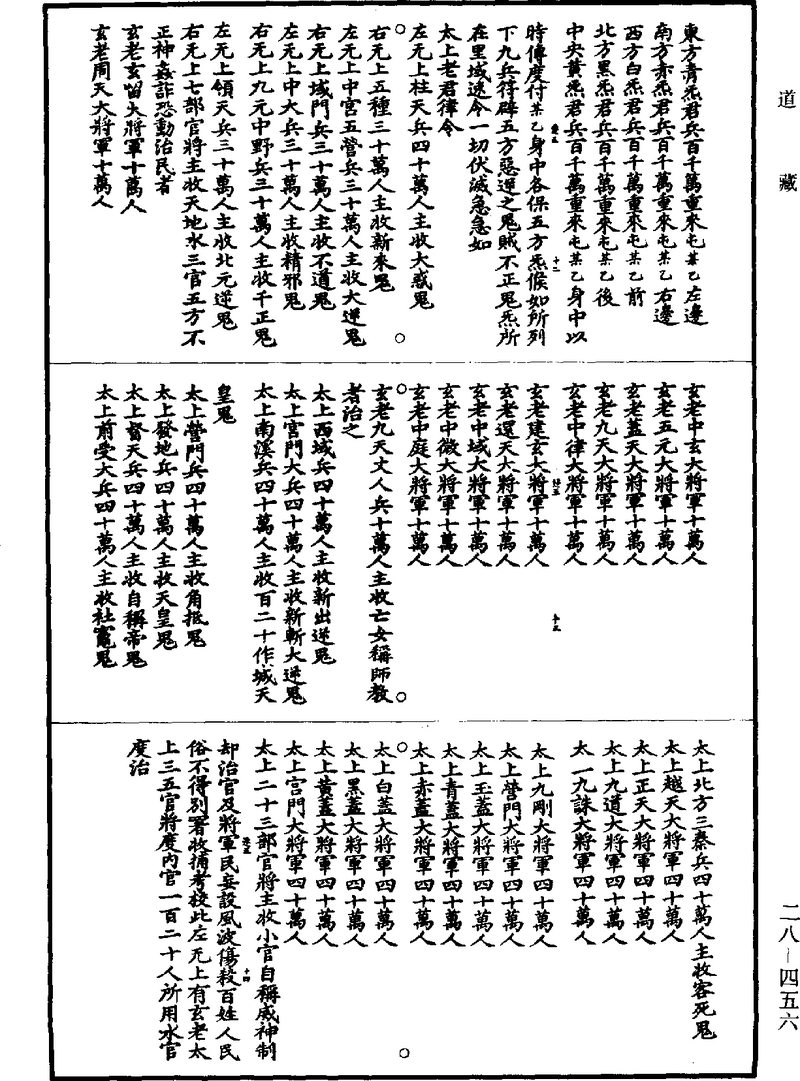 道藏
東方青炁君兵百千萬重來屯某乙左邊
南方赤炁君兵百千萬重來屯某乙右邊
西方白炁君兵百千萬重來屯某乙前
北方黑炁君兵百千萬重來屯某乙後
中央黃炁君兵百千萬重來屯某乙身中以
時傳度付某乙身中各保五方炁候如所列
下九兵符辟五方惡逆之鬼賊不正鬼炁所
在里域速令一切伏滅急急如
太上老君律令
左无上柱天兵四十萬人主收大惑鬼
右无上五種三十萬人主收新來鬼
左无上中宮五營兵三十萬人主收大逆鬼
右无上城門兵三十萬人主收不道鬼
左无上中大兵三十萬人主收精邪鬼
右无上九元中野兵三十萬人主收千正鬼
左无上領天兵三十萬人主收北元逆鬼
右无上七部官將主收天地水三官五方不
正神姦詐恐動治民者
玄老玄留大將軍十萬人
玄老周天大將軍十萬人
玄老中玄大將軍十萬人
玄老五元大將軍十萬人
玄老蓋天大將軍十萬人
玄老九天大將軍十萬人
玄老中律大將軍十萬人
玄老建玄大將軍十萬人
玄老還天大將軍十萬人
玄老中域大將軍十萬人
玄老中微大將軍十萬人
玄老中庭大將軍十萬人
玄老九天丈人兵十萬人主收亡女稱師教
者治之
太上西城兵四十萬人主收新出逆鬼
太上宮門大兵四十萬人主收新斬大逆鬼
太上南溪兵四十萬人主收百二十作城天
皇鬼
太上營門兵四十萬人主收角抵鬼
太上發地兵四十萬人主收天皇鬼
太上督天兵四十萬人主收自稱帝鬼
太上前受大兵四十萬人主收社竈鬼
太上北方三秦兵四十萬人主收客死鬼
太上越天大將軍四十萬人
太上正天大將軍四十萬人
太上九道大將軍四十萬人
太一九誅大將軍四十萬人
太上九剛大將軍四十萬人
太上營門大將軍四十萬人
太上玉蓋大將軍四十萬人
太上青蓋大將軍四十萬人
太上赤蓋大將軍四十萬人
太上白蓋大將軍四十萬人
太上黑蓋大將軍四十萬人
太上黃蓋大將軍四十萬人
太上宮門大將軍四十萬人
太上二十三部官將主收小官自稱威神制
却治官及將軍民妄設風波傷殺百姓人民
俗不得別署收捕考校此左无上有玄老太
上三五官將度內官一百二十人所用水官
度治
二八-四五六